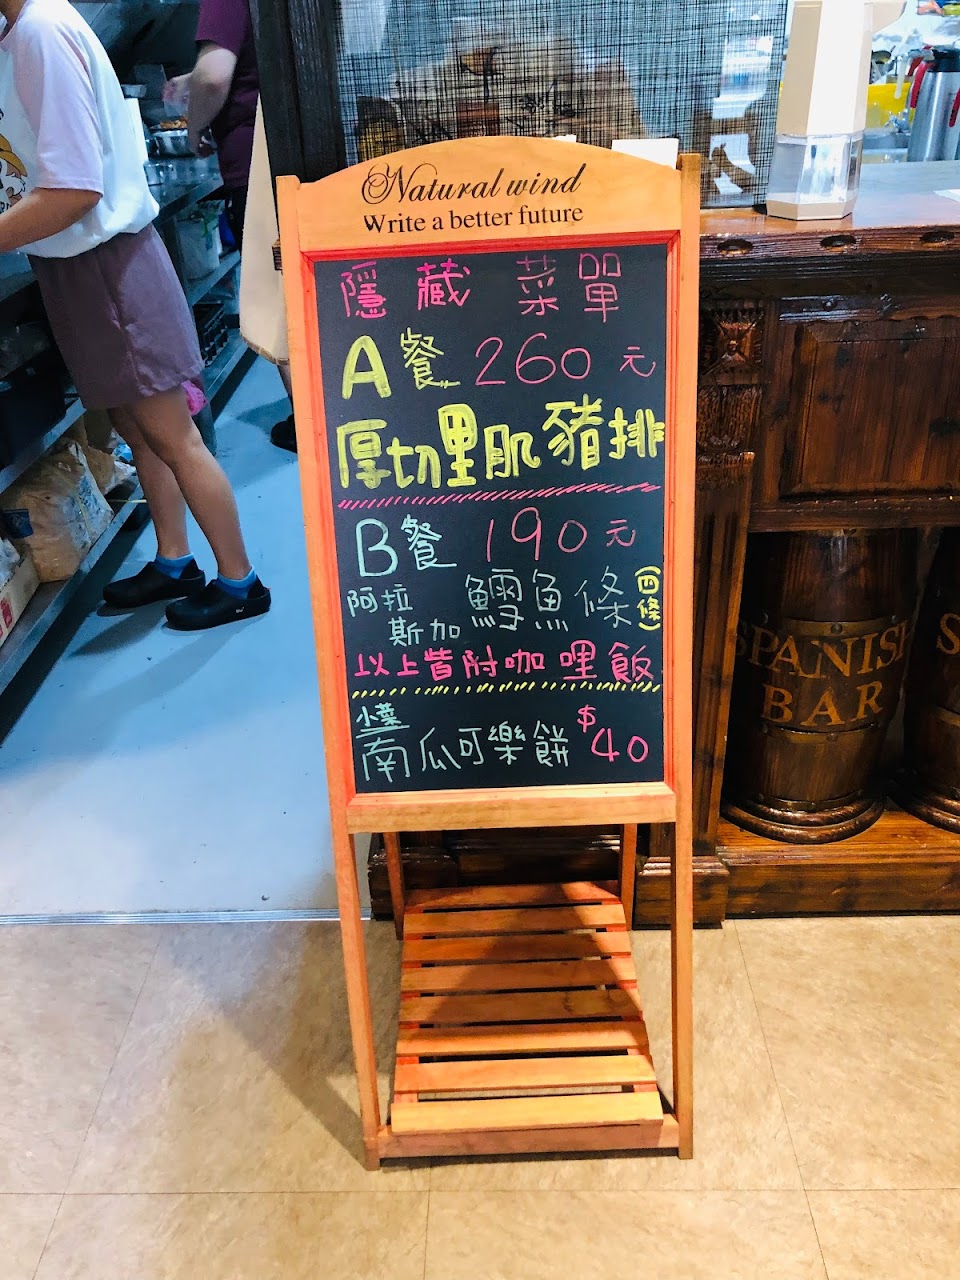 Natural wind
Write a better future
隱藏 菜單
A餐 260元
厚切里肌豬排
B餐 190元
阿拉斯加 鱈魚條 (四條)
以上皆附咖哩飯
小菜
南瓜可樂餅 $40
SPANISH
BAR